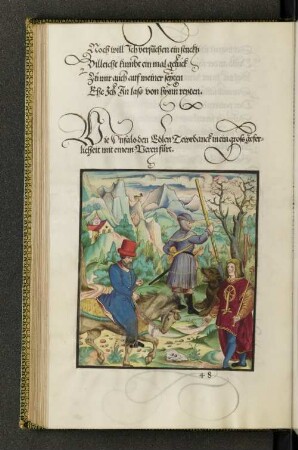 Noch will Ich versuchen ein stuckh
Villeicht kumbt ein mal geluck
Zu mir auch auf meiner seyten
Ehe Ich In lass von hynn reyten.
Wie Unfalo den Edlen Tewrdanck in ein gross gefer-
licheit mit einem Beren fürt.
48